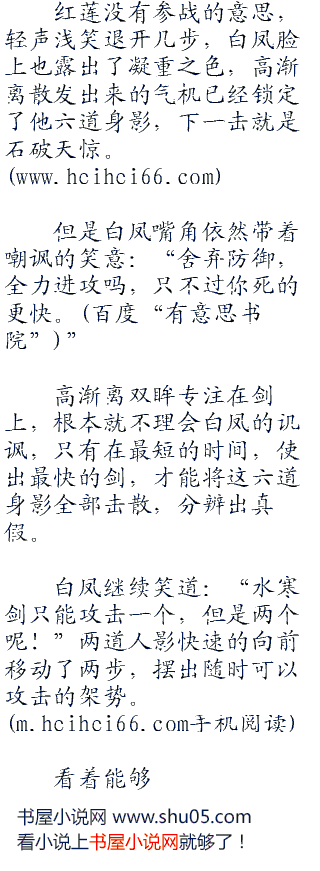 红莲没有参战的意思，
轻声浅笑退开几步，白凤脸
上也露出了凝重之色，高渐
离散发出来的气机已经锁定
了他六道身影，下一击就是
石破天惊。
(www.hcihci66.com)
但是白凤嘴角依然带着
嘲讽的笑意：“舍弃防御，
全力进攻吗，只不过你死的
更快。(百度“有意思书
院”)”
高渐离双眸专注在剑
上，根本就不理会白凤的讥
讽，只有在最短的时间，使
出最快的剑，才能将这六道
身影全部击散，分辨出真
假。
白凤继续笑道：“水寒
剑只能攻击一个，但是两个
呢！”两道人影快速的向前
移动了两步，摆出随时可以
攻击的架势。
(m.hcihci66.com手机阅读)
看着能够
书屋小说网 www.shu05.com
看小说上书屋小说网就够了！